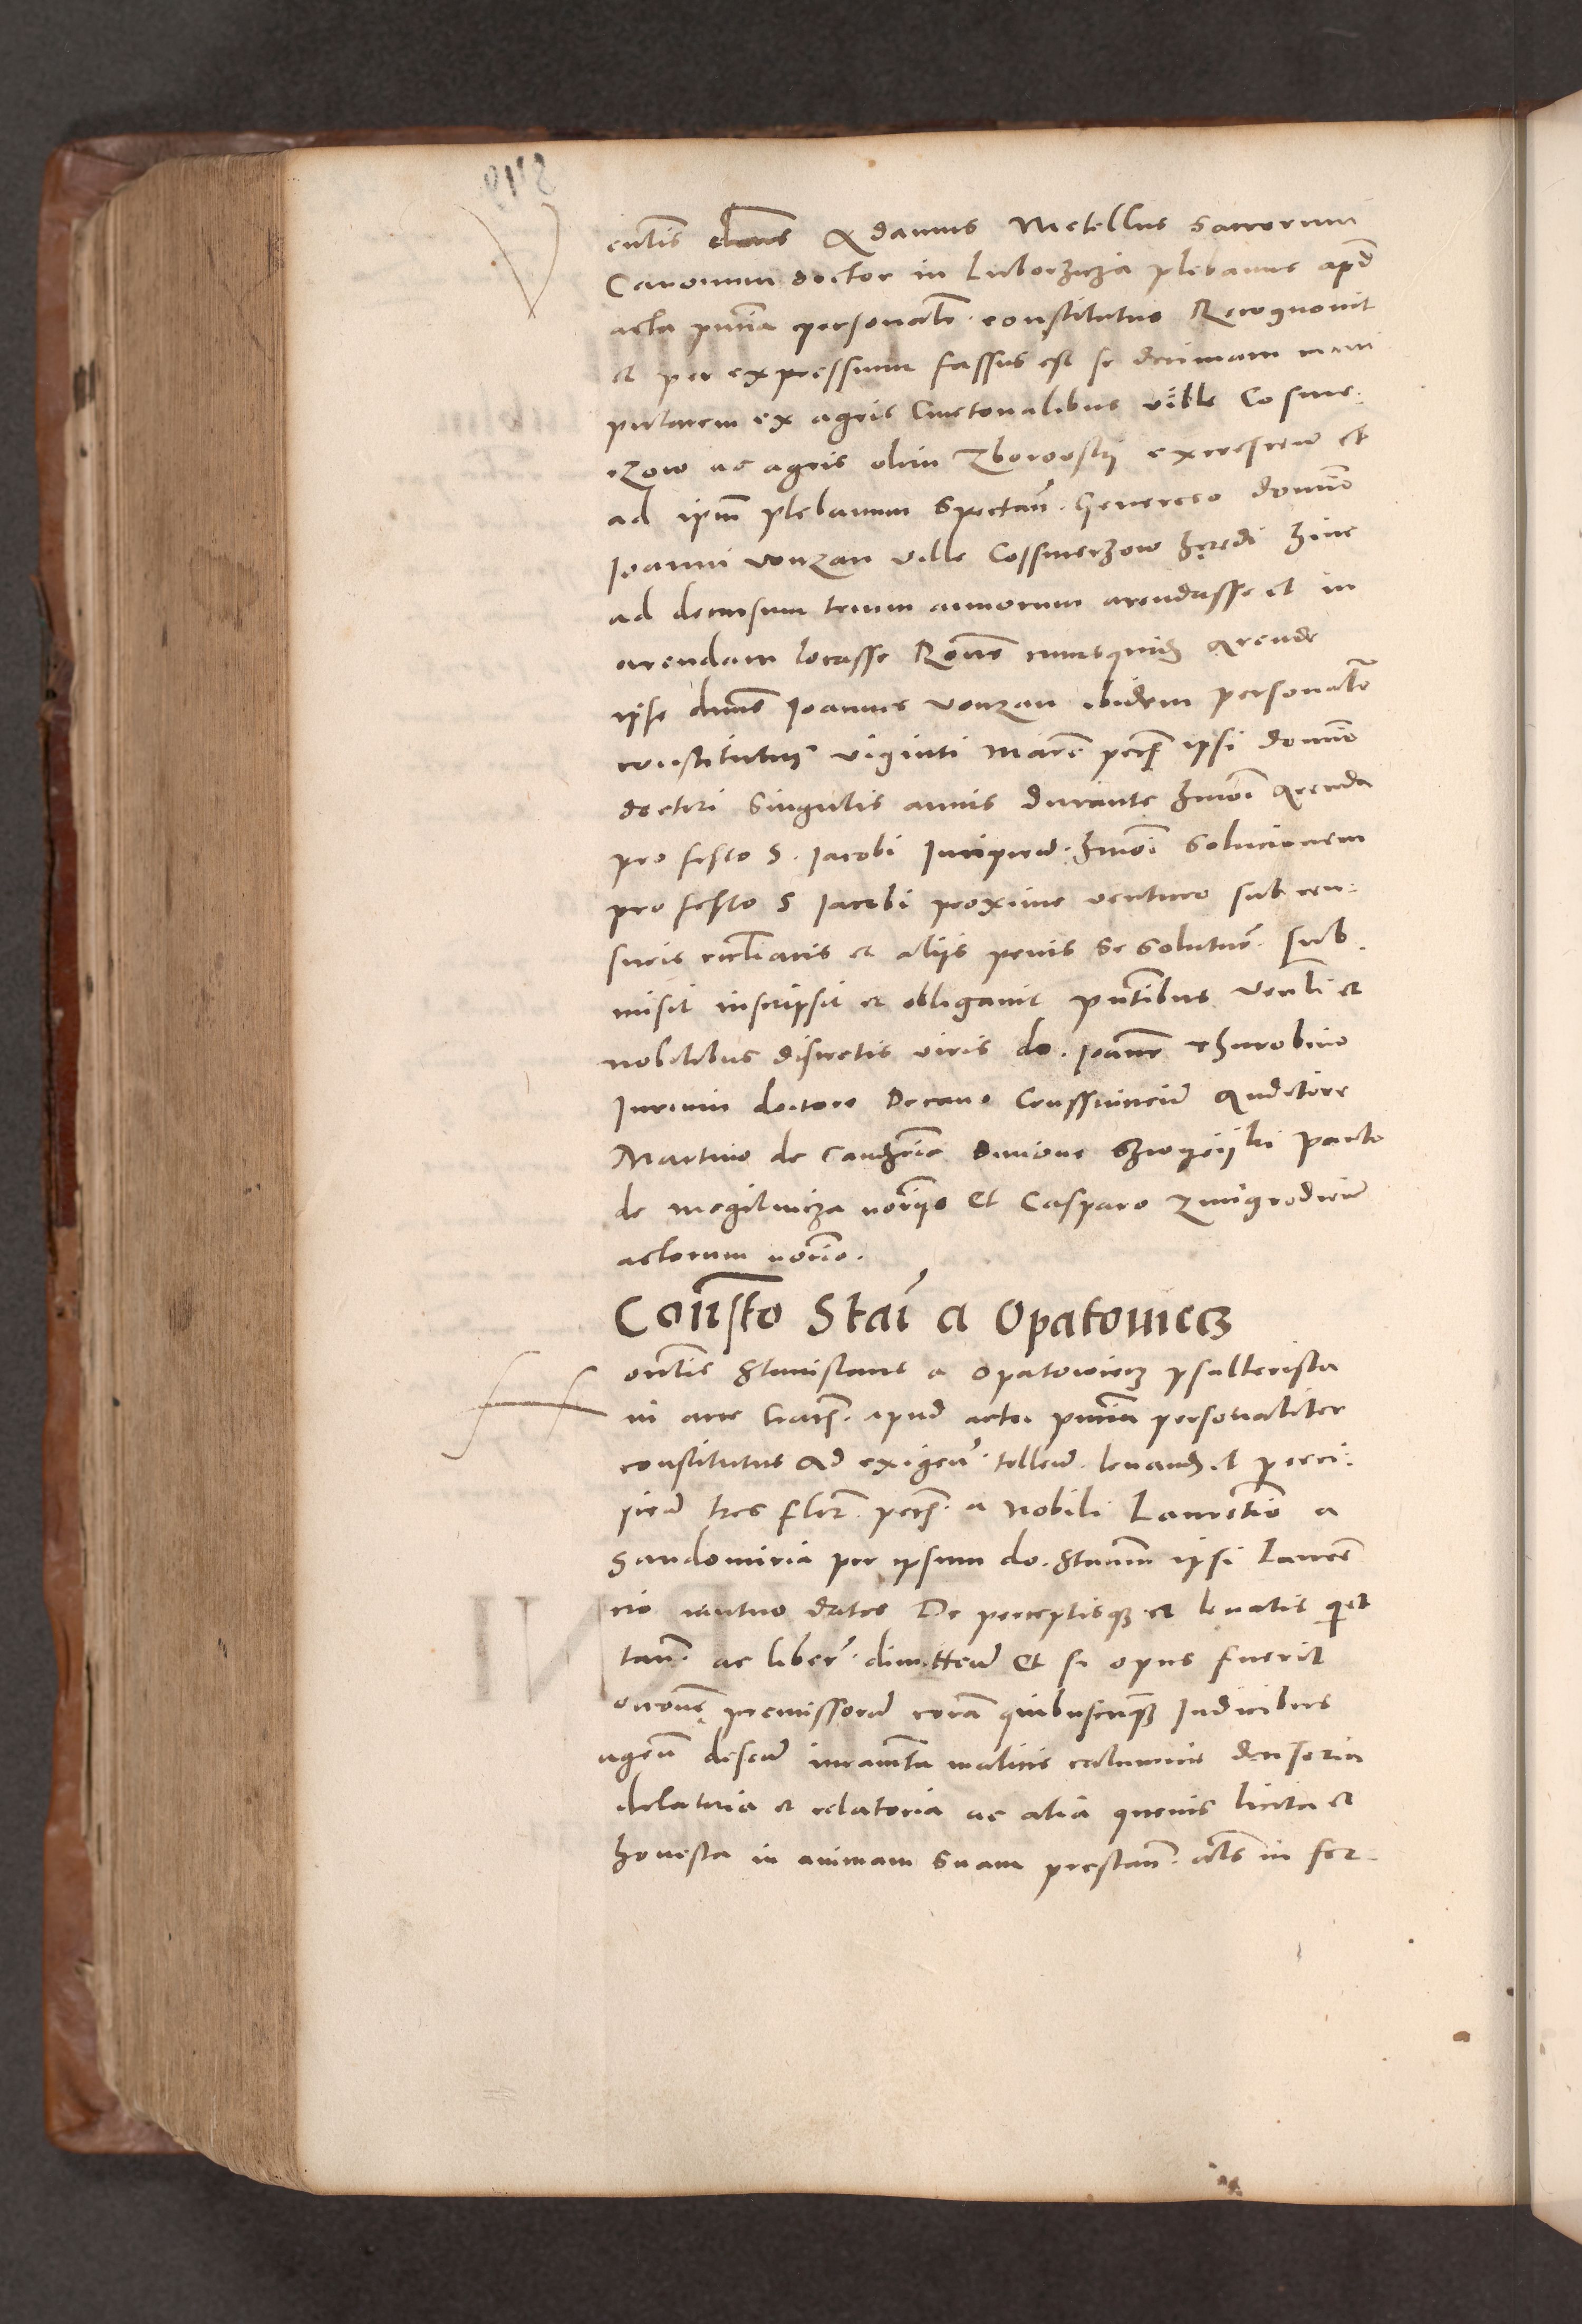 V
enlis dns Adamus Metellus sacrorum
Canonum doctor in Luborzicza plebanus apud
acta pntia personalr constitutus Recognouit
et per expressum fassus est se decimam mani
pularem ex agris Cmetonalibus ville Cosme-
rzow ac agris olim Zborowskij excrescen et
ad ipm plebanum spectan. Generoso domino
Ioanni vonzan ville Cossmerzow heredi hinc
ad decursum trium annorum arendasse et in
arendam locasse Rone cuiusquidem Arende
ipse dnus Ioannes vonzan ibidem personalr
constitutus viginti marc pec ipsi domino
doctori singulis annis durante hmoi Arenda
pro festo S. Iacobi Incipien. hmoi solucionem
pro festo S Iacobi proxime venturo sub cen-
suris eccliacis et aliis penis se soluturum sub-
misit inscripsit et obligauit pntibus venli et
nobilibus discretis viris do. Ioanne Thurobino
Iurium doctore Decano Auditore
Martino de Simone Paulo
de mogilnicza norijs Et Casparo Zmigrodien
actorum norio.
Constto Stai a Opatowiecz
onlis Stanislaus a Opatowiecz psalterista
in arce Crac. apud acta pntia personaliter
constitutus Ad exigen. tollen. leuand. et perci-
pien tres flor. pec. a Nobili Laurentio a
Sandomiria per ipsum do. Stanm ipsi Lauren
cio mutuo datos De perceptisque et leuatis quit
tan. ac liber. dimitten Et si opus fuerit
occone premissorum coram quibuscunque Iudicibus
agen defen iuramta malicie calumnie decisoria
delatoria et relatoria ac alia queuis licita et
honesta in animam suam prestan. als in for-